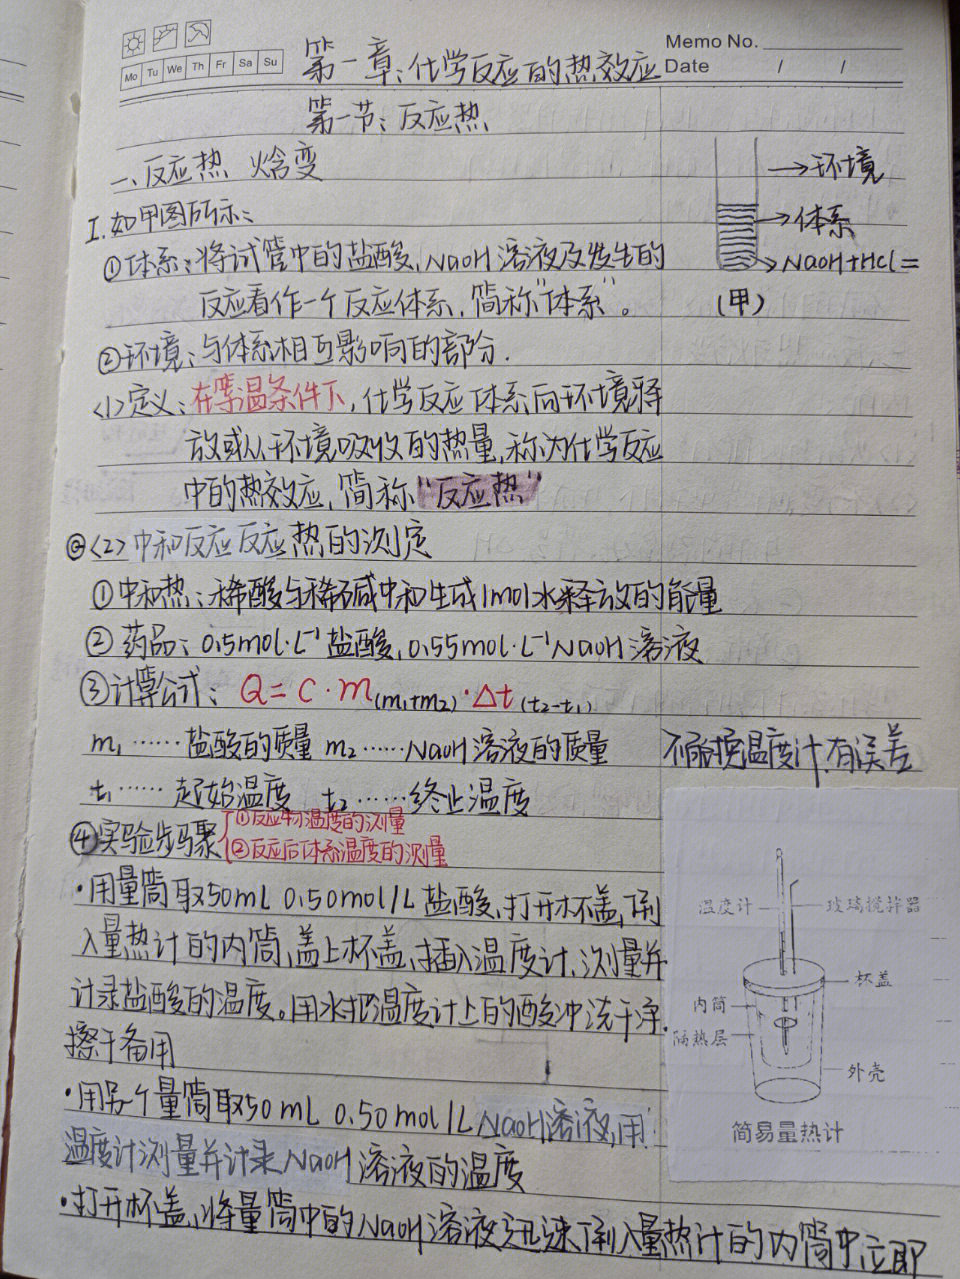 Memo No.
Mo Tu We Th Fr Sa Su
Date / /
第一章:化学反应的热效应
第一节:反应热
一、反应热 焓变
I.如甲图所示:
①体系:将试管中的盐酸、NaOH溶液及发生的
反应看作一个反应体系,简称"体系"。
②环境:与体系相互影响的部分.
→环境
→体系
→NaOH+HCl=
(甲)
<1>定义:在等温条件下,化学反应体系向环境释
放或从环境吸收的热量,称为化学反应
中的热效应,简称"反应热"
<2>中和反应反应热的测定
①中和热:稀酸与稀碱中和生成1mol水释放的能量
②药品:0.5mol·L⁻¹盐酸,0.55mol·L⁻¹NaOH溶液
③计算公式:Q=C·m(m₁+m₂)·Δt(t₂-t₁)
m₁……盐酸的质量 m₂……NaOH溶液的质量
t₁……起始温度 t₂……终止温度
不能换温度计,有误差
④实验步骤
①反应物温度的测量
②反应后体系温度的测量
·用量筒取50mL 0.50mol/L盐酸,打开杯盖,倒
入量热计的内筒,盖上杯盖,插入温度计,测量并
计录盐酸的温度。用水把温度计上的酸冲洗干净.
擦干备用
·用另个量筒取50mL 0.50mol/L NaOH溶液,用
温度计测量并计录NaOH溶液的温度
·打开杯盖,将量筒中的NaOH溶液迅速倒入量热计的内筒中立即
温度计
玻璃搅拌器
杯盖
内筒
隔热层
外壳
简易量热计